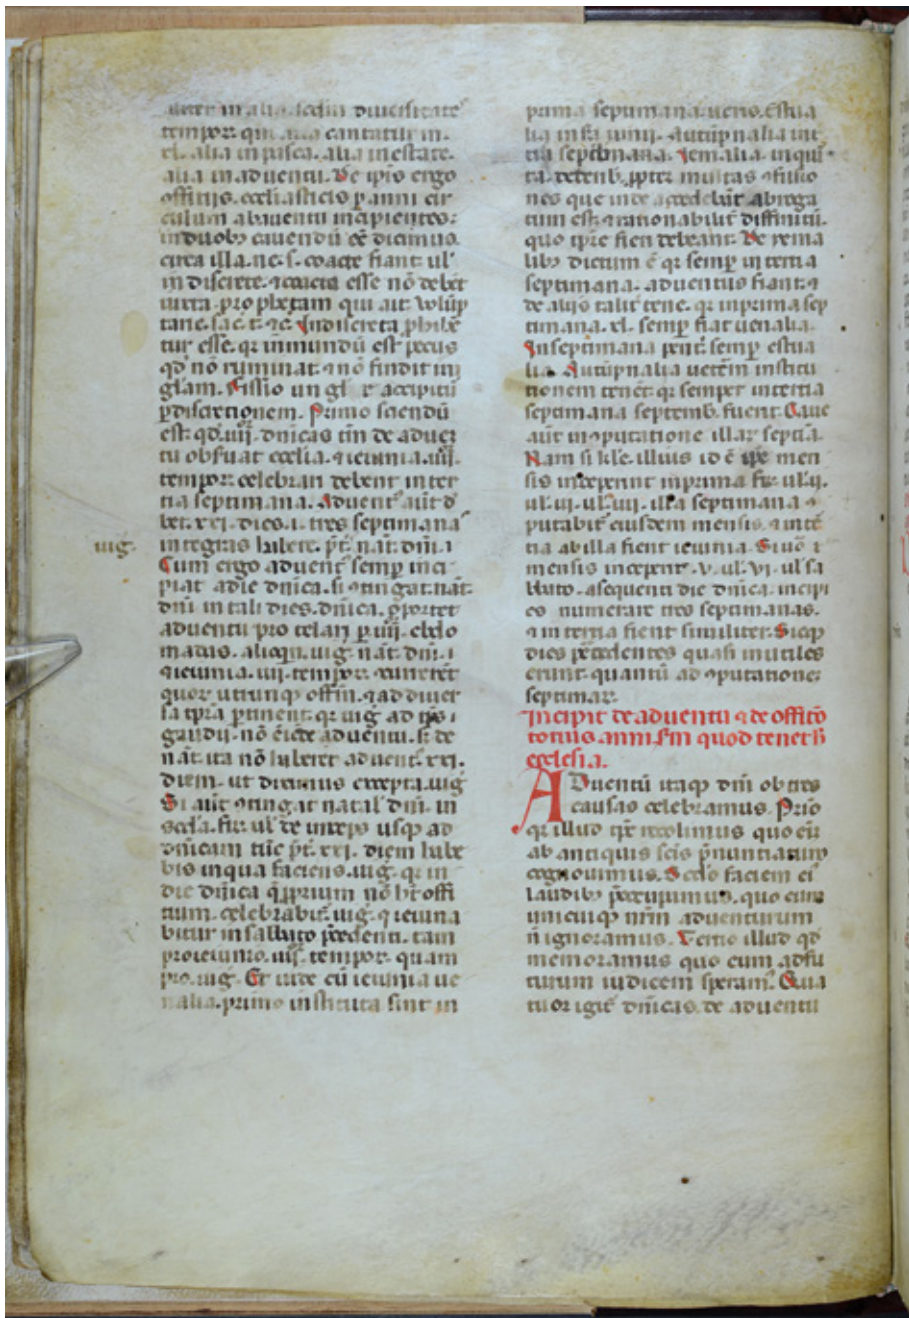 in alia ecclia diuersitate
tempor. que alia cantatur in
xl. alia in pasca. alia in estate.
alia in aduentu. De ipis ergo
offitiis. eccliasticis p anni cir
culum abauentu incipientes.
induob; cauendū eē dicimus
circa illa. ne. s. coacte fiant ul'
indiscrete. ⁊ coacta esse nō debēt
iuxta prophetam qui ait. Volūp
tarie. sac. t. ⁊c. Indiscreta phibē
tur esse. qr inmundū est pecus
qd nō ruminat. ⁊ nō findit un
glam. Fissio ungl' r accipitū
p discretionem. Primo sciendū
est. qd. iiij. dnicas tm de aduē
tu obsuat ecclia. ⁊ ieiunia. iiij.
tempor. celebrari debent in ter
tia septimana. Aduent' aut d'
bet. xxi. dies. i. tres septimana'
uig.
integras habere. pt. nāt. dni. i
Cum ergo aduent' semp inci
piat adie dnica. si ⁊tingat. nāt.
dni in tali dies. dnica. oportet
aduentū protelari p iiij. ebdo
madas. alioqn. uig. nāt. dni. i
⁊ ieiunia. iiij. tempor. ⁊uenirēt
quor utrunq; offm. ⁊ ad diuer
sa tpra ptinent. qr uig. ad
gaudii. nō de aduentu. s; de
nāt. ita nō haberet aduent. xxi.
diem. ut dicimus excepta. uig
Si aut ⁊tingat natal' dni. in
scda. fr. ul' deinceps usq; ad
dnicam tūc pt. xxi. diem habe
bis inqua faciens. uig. qr in
die dnica ppium nō ht offi
tium. celebrabit. uig. ⁊ ieiuna
bitur in sabbato pcedenti. tam
pro ieiunio. iiij. tempor. quam
pro. uig. Et inde cū ieiunia ue
nalia. primo instituta sint in
prima septimana. ueris. Estiua
lia in scda iunii. Autūpnalia int
tia septēbriana. Yemalia. in quar
ta. decenb. ppter multas ⁊fusio
nes que inde accedebāt abroga
tum est. ⁊ rationabilit' diffinitū.
quo tpre fieri debeant. De yema
lib; dictum ē qr semp in tertia
septimana. aduentus fiant. ⁊
de aliis talit' tene. qr inprima sep
timana. xl. semp fiat uenalia.
Inseptimana pent'. semp estiua
lia. Autūpnalia uetem institu
tionem tenēt. qr semper intertia
septimana septemb. fuent. Caue
aut in ⁊putatione illar septia.
Nam si kle. illius id ē ipse men
sis inceperint in prima fr. ul'. ij.
ul'. iij. ul'. iiij. illa septimana ⁊
putabit' eiusdem mensis. ⁊ intē
tia ab illa fient ieiunia. Si uō i
mensis inceperit. v. ul'. vi. ul' sa
bbato. asequenti die dnica. incipi
es numerare tres septimanas.
⁊ in tertia fient similiter. Sicq;
dies pcedentes quasi inutiles
erunt. quantū ad ⁊putatione;
septimar.
Incipit de aduentu ⁊ de offito
totius anni scdm quod tenet h
ecclesia.
ADuentū itaq; dni ob tres
causas celebramus. Prio
qr illud tpe recolimus quo eū
ab antiquis scis pnuntiatum
cognouimus. Scdo faciem ei'
laudib; pcurrimus. quo eum
unicuiq; nrm aduenturum
n ignoramus. Tertio illud qd
memoramus quo eum adfu
turum iudicem speram'. Qua
tuor igit' dnicas. de aduentu